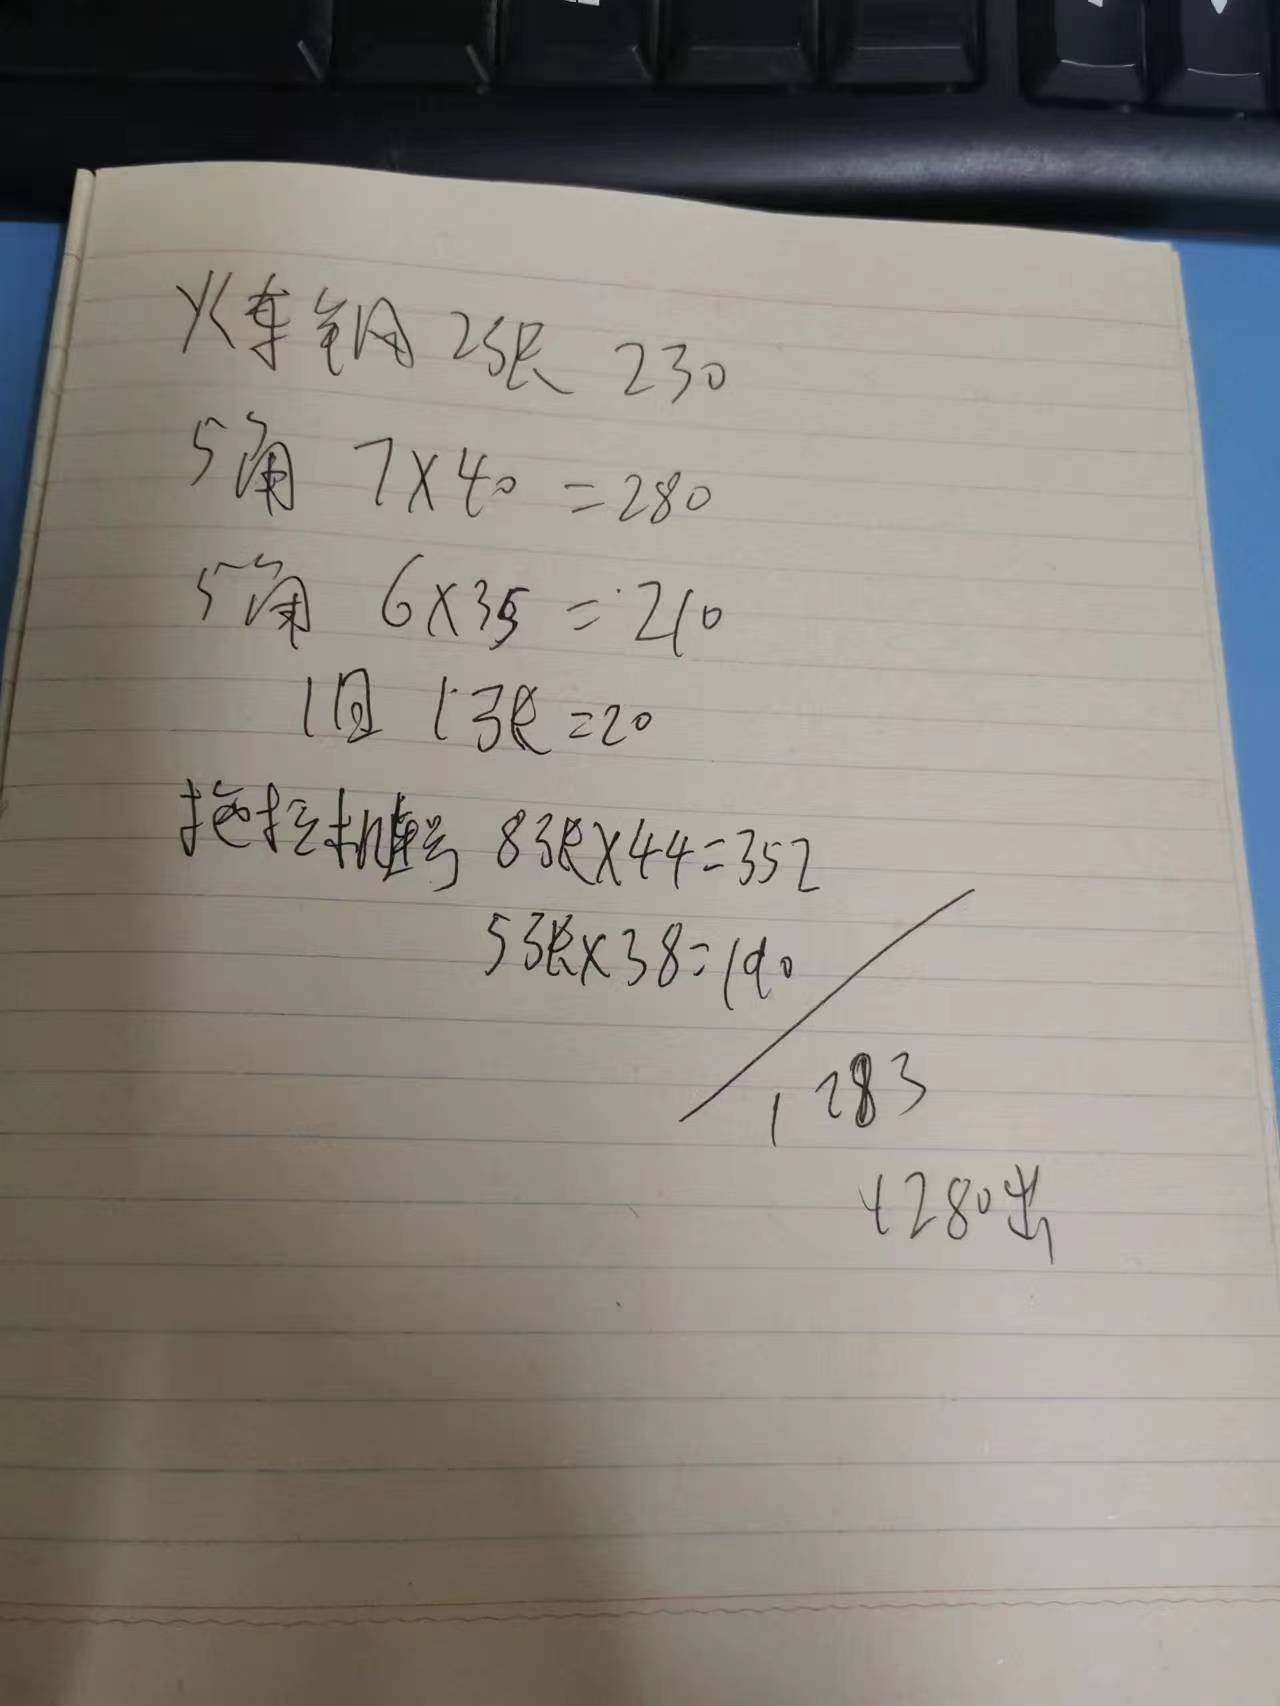 火车 2张 230
5角 7X40=280
5角 6X35=210
1回 1张=20
拖拉机直号 8张X44=352
5张X38=190
1283
1280出